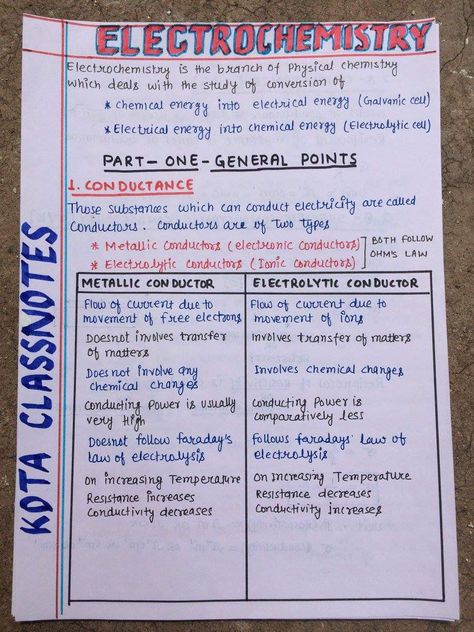 ELECTROCHEMISTRY
Electrochemistry is the branch of Physical chemistry
which deals with the study of conversion of
* Chemical energy into electrical energy (Galvanic cell)
* Electrical energy into chemical energy (Electrolytic cell)
PART-ONE-GENERAL POINTS
1. CONDUCTANCE
Those Substances which can conduct electricity are called
Conductors. Conductors are of Two types
* Metallic Conductors (electronic Conductors)
* Electrolytic Conductors (Ionic Conductors)
BOTH FOLLOW
OHM'S LAW
METALLIC CONDUCTOR
Flow of current due to
movement of free electrons
Doesnot involves transfer
of matters
Doesnot involve any
chemical changes
Conducting Power is usually
very High
Doesnot follow faraday's
law of electrolysis
On increasing Temperature
Resistance increases
Conductivity decreases
ELECTROLYTIC CONDUCTOR
Flow of current due to
movement of ions
Involves transfer of matters
Involves chemical changes
Conducting Power is
comparatively less
Follows faradays' law of
electrolysis
On increasing Temperature
Resistance decreases
Conductivity increases
KOTA CLASSNOTES